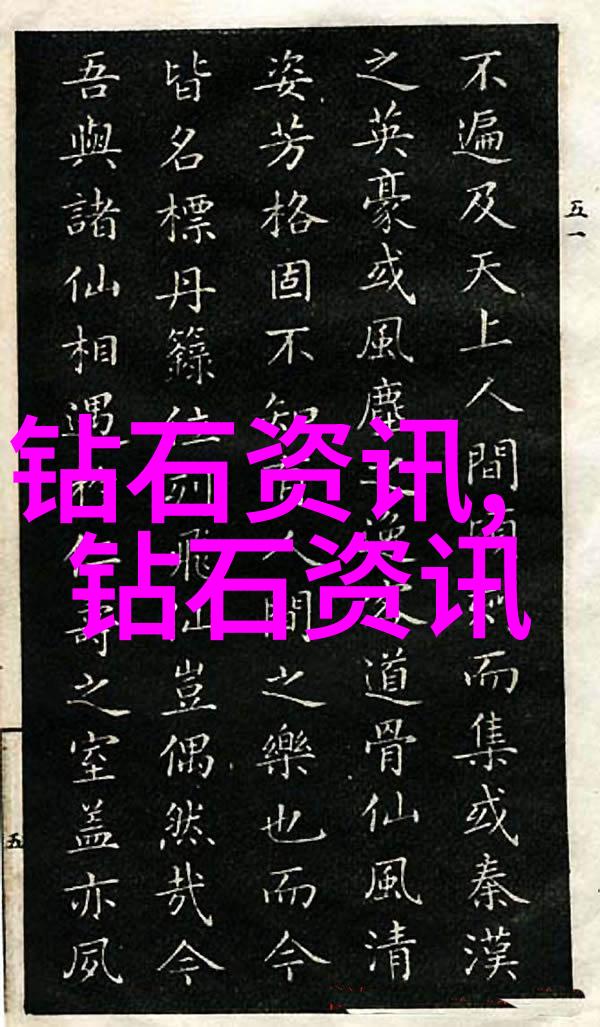 不遍及天上人間而集或秦漢
之英豪或風塵道骨仙風清
姿芳格固不知人間之樂也而今
皆名標丹籙位列飛仙豈偶然哉今
吾與諸仙相遇壽之室蓋亦夙
五一
五
钻石资讯,
钻石资讯